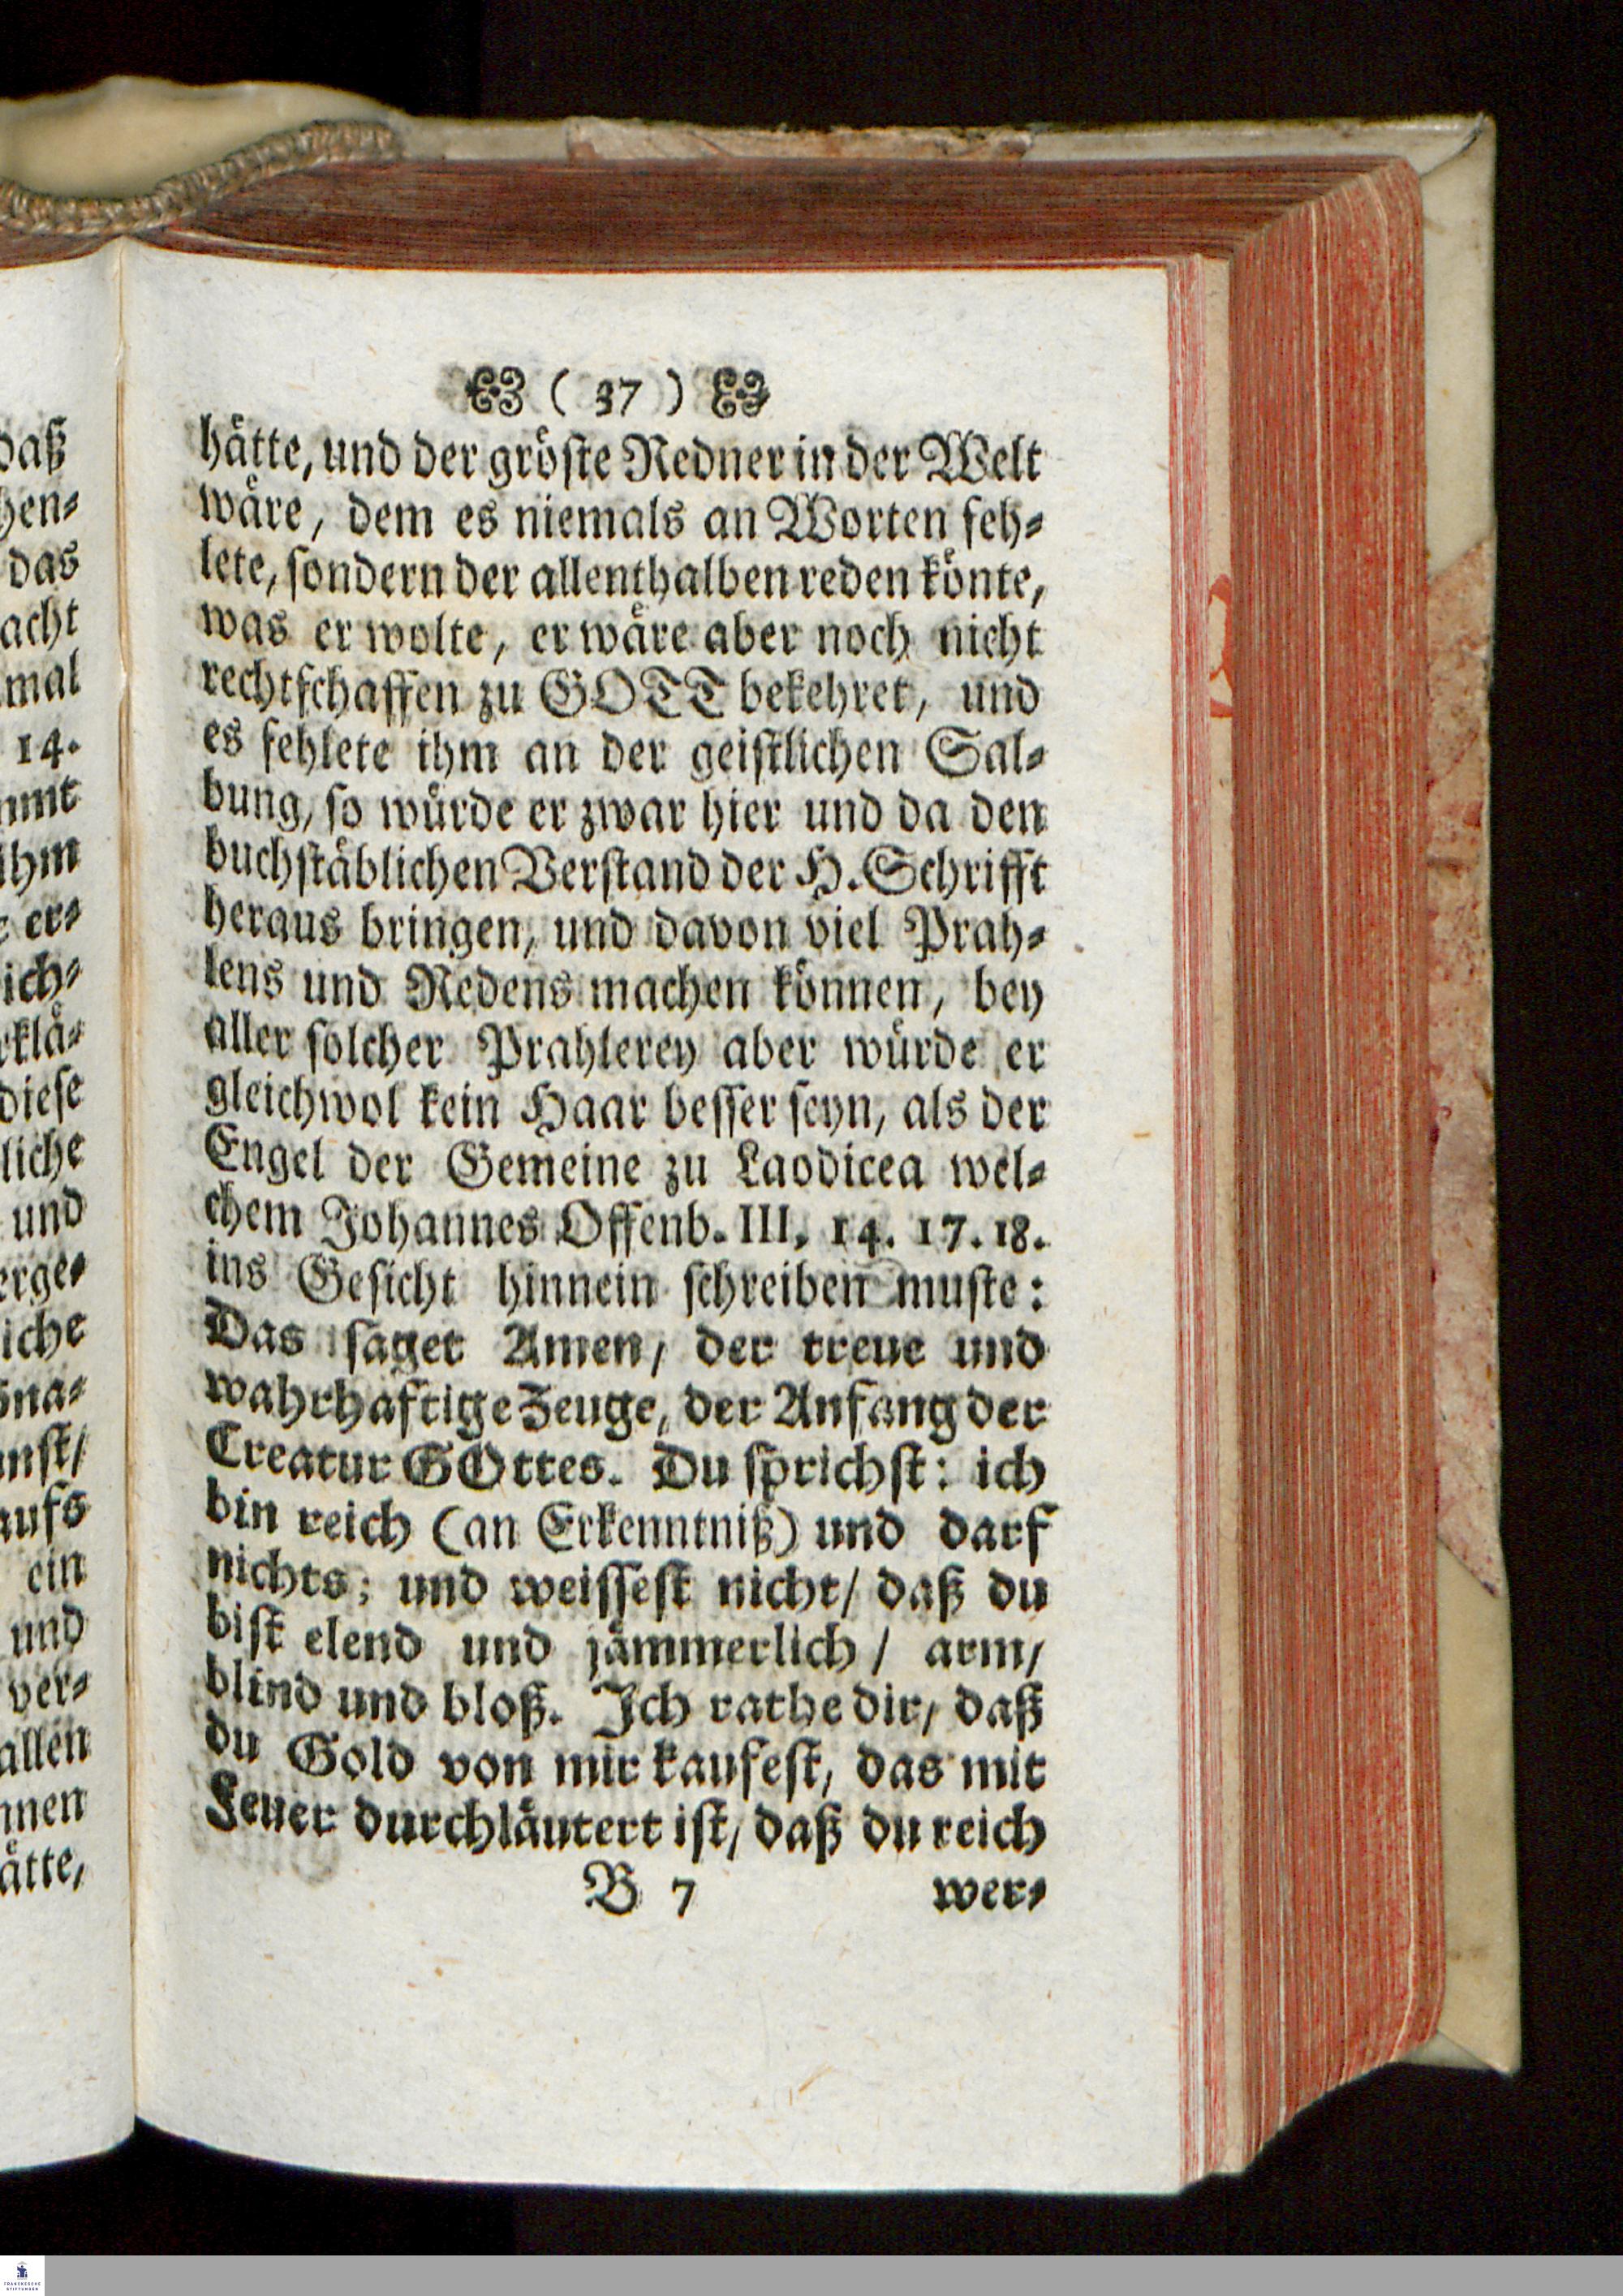 daß
hen⸗
das
acht
mal
14.
mmt
ihm
er⸗
ich⸗
rklä⸗
diese
liche
und
erge⸗
iche
Gna⸗
nst/
aufs
ein
und
ver⸗
allen
nnen
ätte,
( 37 )
hätte, und der gröste Redner in der Welt
wäre, dem es niemals an Worten feh⸗
lete, sondern der allenthalben reden könte,
was er wolte, er wäre aber noch nicht
rechtschaffen zu GOTT bekehret, und
es fehlete ihm an der geistlichen Sal⸗
bung, so würde er zwar hier und da den
buchstäblichen Verstand der H. Schrifft
heraus bringen, und davon viel Prah⸗
lens und Redens machen können, bey
aller solcher Prahlerey aber würde er
gleichwol kein Haar besser seyn, als der
Engel der Gemeine zu Laodicea wel⸗
chem Johannes Offenb. III, 14. 17. 18.
ins Gesicht hinnein schreiben muste:
Das saget Amen, der treue und
wahrhaftige Zeuge, der Anfang der
Creatur GOttes. Du sprichst: ich
bin reich (an Erkenntniß) und darf
nichts; und weissest nicht/ daß du
bist elend und jämmerlich/ arm/
blind und bloß. Ich rathe dir, daß
du Gold von mir kaufest, das mit
Feuer durchläutert ist, daß du reich
B 7 wer⸗
FRANCKESCHE
STIFTUNGEN